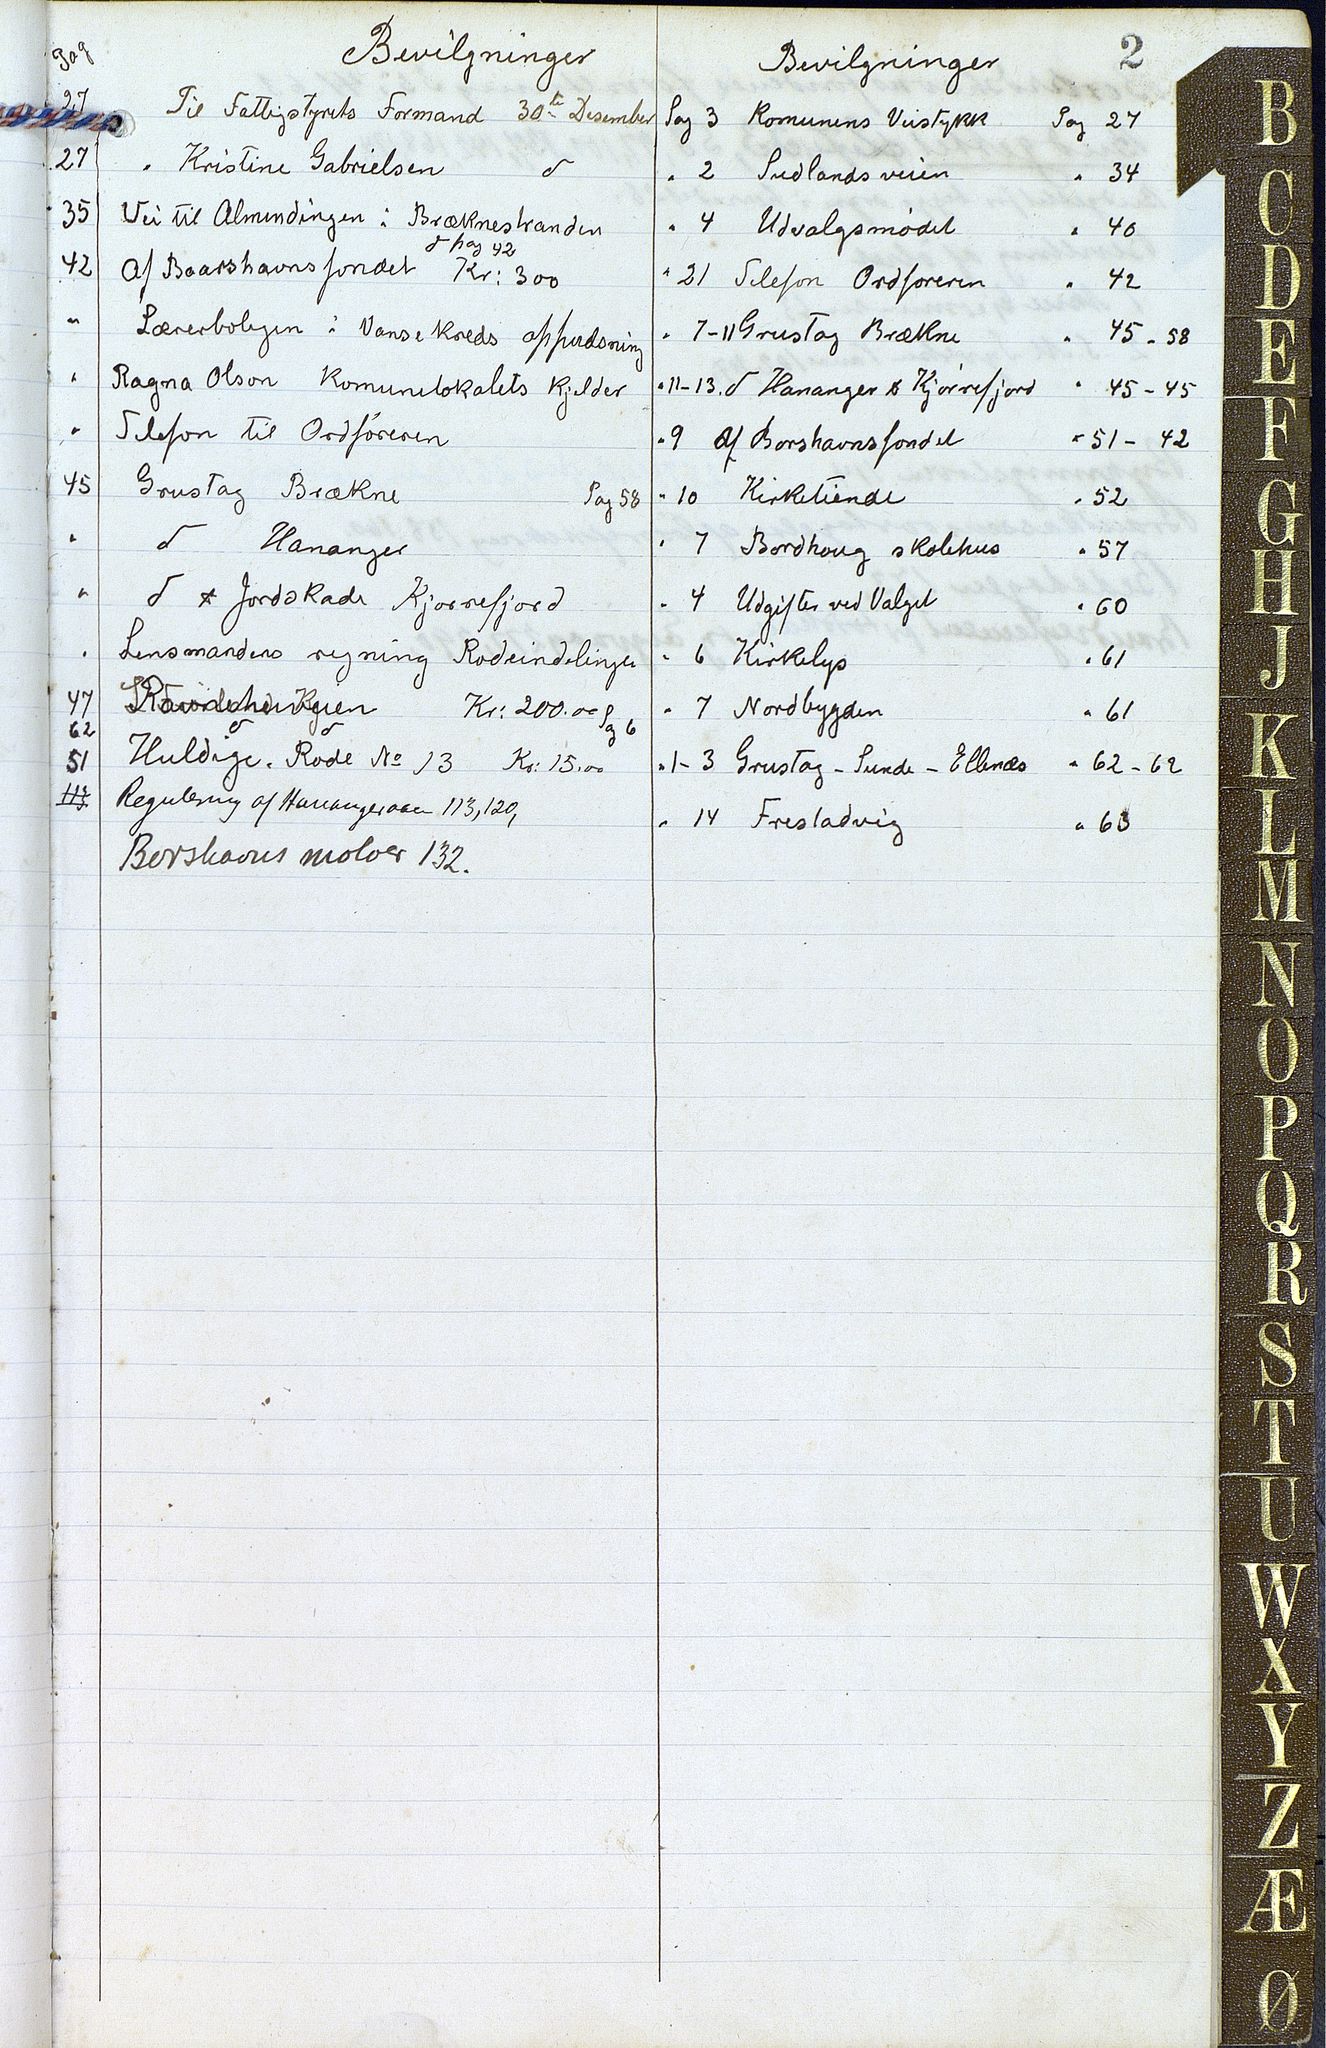 2
Pag Bevilgninger
27 Til Fattigstyrets Formand 30te Desember
27 " Kristine Gabrielsen d
35 Vei til Almindingen i Bræknestranden
d pag 42
42 Af Baarshavnsfondet Kr: 300
" Lærerboligen i Vanse Kreds oppudsning
" Ragna Olson Komunelokalets Kjelder
" Telefon til Ordföreren
45 Grustag Brækne Pag 58
" d Hananger
" d & Jordskade Kjørrefjord
" Lensmandens regning Rodeindelingen
47 Kr: 200.00
62 d d Pag 6
51 Huldige. Rode No 13 Kr: 15.00
113 Regulering af Hanangeraaen 113, 120,
Borshavns moloer 132.
Bevilgninger
Pag 3 Komunens Veistykk Pag 27
" 2 Sudlandsveien " 34
" 4 Udvalgsmødet " 40
" 21 Telefon Ordføreren " 42
" 7-11 Grustag Brækne " 45 - 58
" 11-13. d Hananger & Kjørrefjord " 45 - 45
" 9 Af Borshavnsfondet " 51 - 42
" 10 Kirketiende " 52
" 7 Bordhoug skolehus " 57
" 4 Udgifter ved Valget " 60
" 6 Kirkelys " 61
" 7 Nordbygden " 61
" 1-3 Grustag - Sunde - Ellenæs " 62 - 62
" 14 Frestadvig " 63
B
C
D
E
F
G
H
J
K
L
M
N
O
P
Q
R
S
T
U
W
X
Y
Z
Æ
Ø